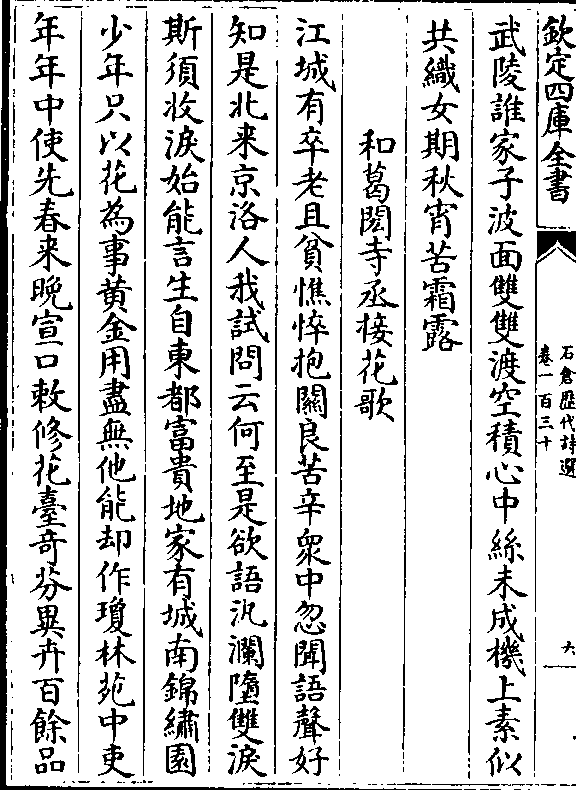 欽定四庫全書
石倉歷代詩選
卷一百三十
六
武陵誰家子波面雙雙渡空積心中絲未成機上素似
共織女期秋宵苦霜露
和葛閎寺丞接花歌
江城有卒老且貧憔悴抱關良苦辛衆中忽聞語聲好
知是北来京洛人我試問云何至是欲語汍瀾墮雙淚
斯須收淚始能言生自東都富貴地家有城南錦繡園
少年只以花為事黄金用盡無他能却作瓊林苑中吏
年年中使先春来晚宣口敕修花臺奇芬異卉百餘品